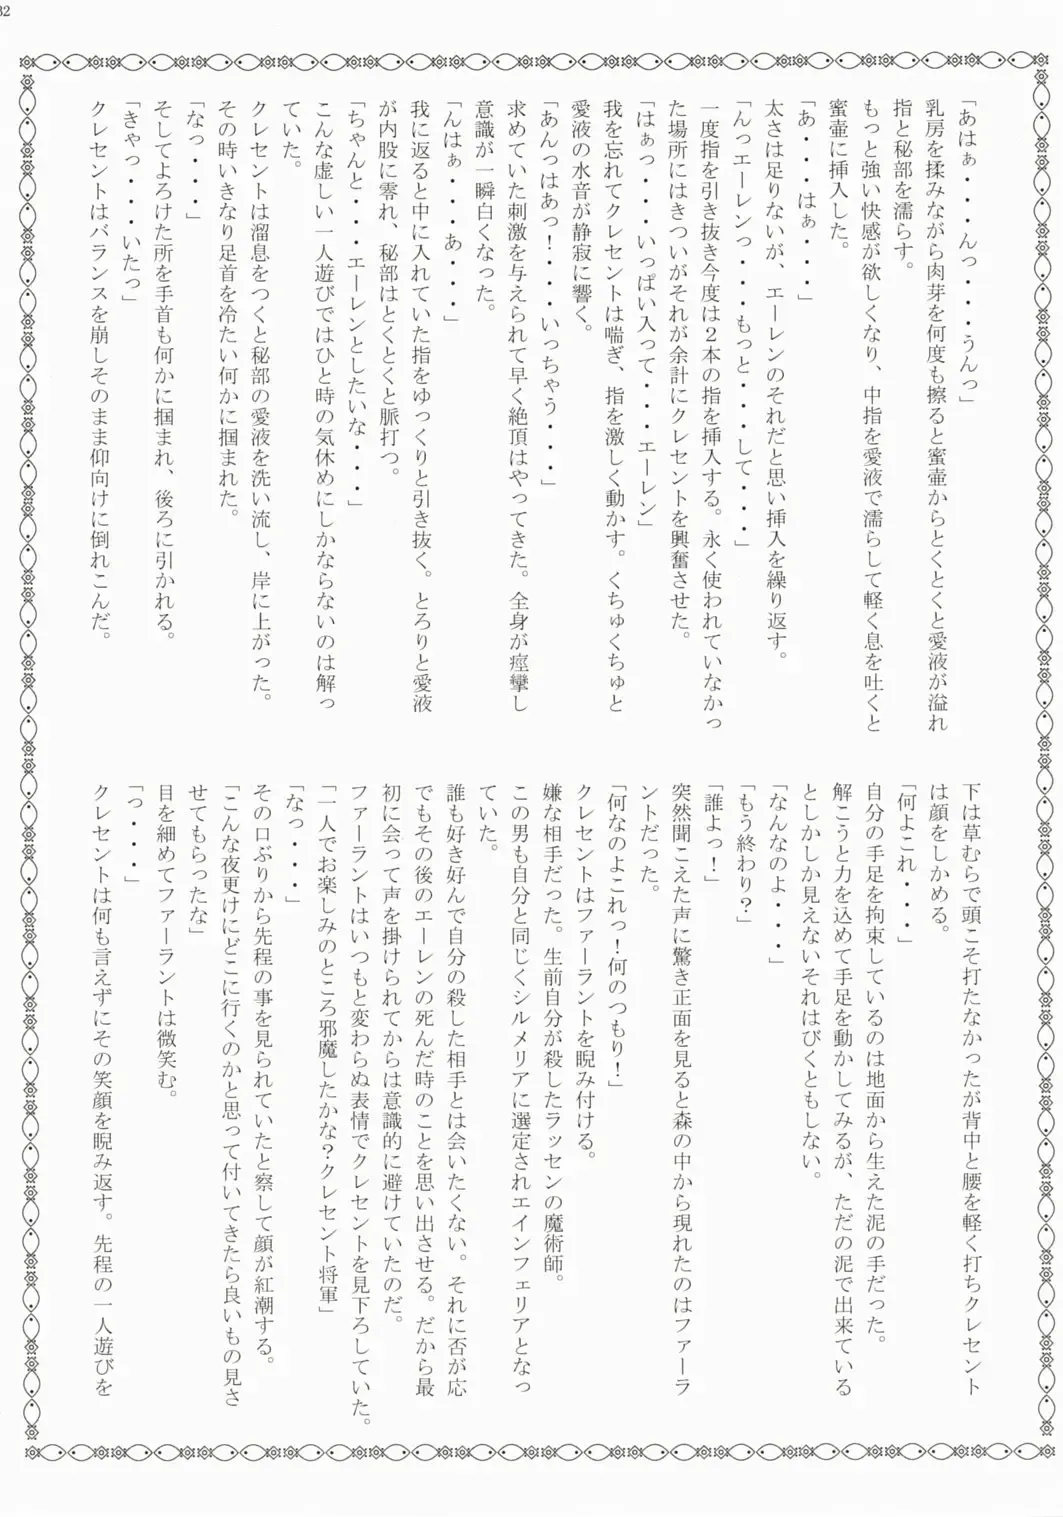 32
「あはぁ・・・んっ・・・うんっ」
乳房を揉みながら肉芽を何度も擦ると蜜壷からとくとくと愛液が溢れ
指と秘部を濡らす。
もっと強い快感が欲しくなり、中指を愛液で濡らして軽く息を吐くと
蜜壷に挿入した。
「あ・・・はぁ・・・」
太さは足りないが、エーレンのそれだと思い挿入を繰り返す。
「んっエーレンっ・・・もっと・・・して・・・」
一度指を引き抜き今度は２本の指を挿入する。永く使われていなかっ
た場所にはきついがそれが余計にクレセントを興奮させた。
「はぁっ・・・いっぱい入って・・・エーレン」
我を忘れてクレセントは喘ぎ、指を激しく動かす。くちゅくちゅと
愛液の水音が静寂に響く。
「あんっはあっ！・・・いっちゃう・・・」
求めていた刺激を与えられて早く絶頂はやってきた。全身が痙攣し
意識が一瞬白くなった。
「んはぁ・・・あ・・・」
我に返ると中に入れていた指をゆっくりと引き抜く。とろりと愛液
が内股に零れ、秘部はとくとくと脈打つ。
「ちゃんと・・・エーレンとしたいな・・・」
こんな虚しい一人遊びではひと時の気休めにしかならないのは解っ
ていた。
クレセントは溜息をつくと秘部の愛液を洗い流し、岸に上がった。
その時いきなり足首を冷たい何かに掴まれた。
「なっ・・・」
そしてよろけた所を手首も何かに掴まれ、後ろに引かれる。
「きゃっ・・・いたっ」
クレセントはバランスを崩しそのまま仰向けに倒れこんだ。
下は草むらで頭こそ打たなかったが背中と腰を軽く打ちクレセント
は顔をしかめる。
「何よこれ・・・」
自分の手足を拘束しているのは地面から生えた泥の手だった。
解こうと力を込めて手足を動かしてみるが、ただの泥で出来ている
としかしか見えないそれはびくともしない。
「なんなのよ・・・」
「もう終わり？」
「誰よっ！」
突然聞こえた声に驚き正面を見ると森の中から現れたのはファーラ
ントだった。
「何なのよこれっ！何のつもり！」
クレセントはファーラントを睨み付ける。
嫌な相手だった。生前自分が殺したラッセンの魔術師。
この男も自分と同じくシルメリアに選定されエインフェリアとなっ
ていた。
誰も好き好んで自分の殺した相手とは会いたくない。それに否が応
でもその後のエーレンの死んだ時のことを思い出させる。だから最
初に会って声を掛けられてからは意識的に避けていたのだ。
ファーラントはいつもと変わらぬ表情でクレセントを見下ろしていた。
「一人でお楽しみのところ邪魔したかな？クレセント将軍」
「なっ・・・」
その口ぶりから先程の事を見られていたと察して顔が紅潮する。
「こんな夜更けにどこに行くのかと思って付いてきたら良いもの見さ
せてもらったな」
目を細めてファーラントは微笑む。
「っ・・・」
クレセントは何も言えずにその笑顔を睨み返す。先程の一人遊びを